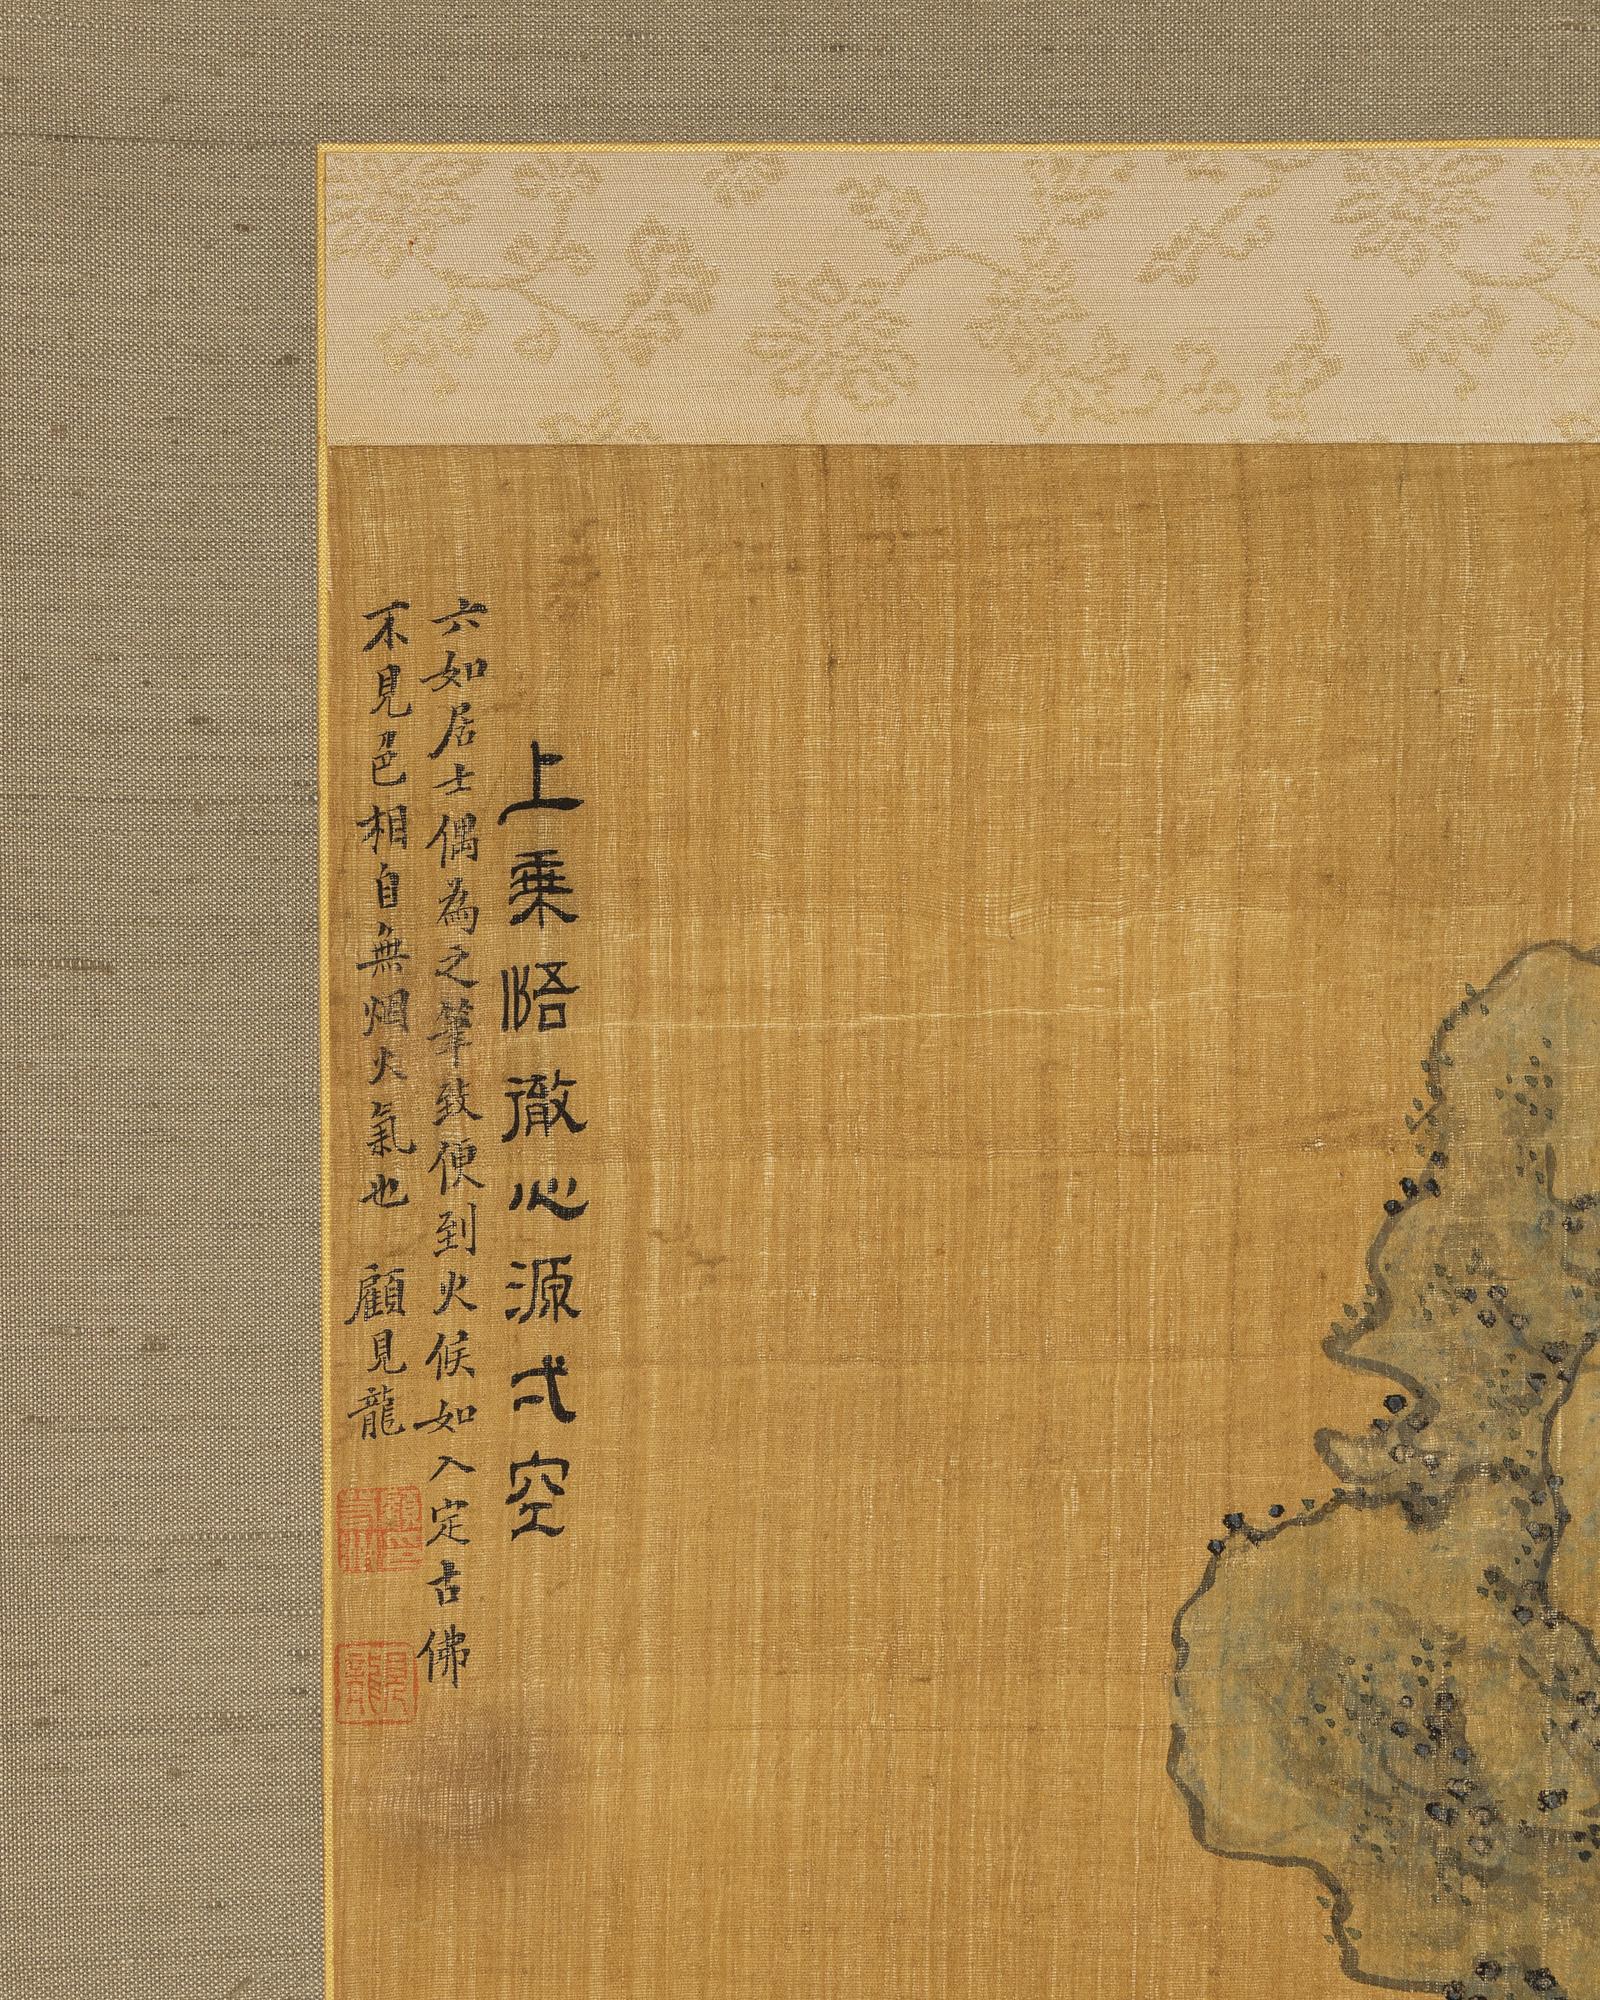 上乗悟徹心源弌空
六如居士偶為之筆致便到火候如入定古佛
不見色相自無烟火氣也 顧見龍
見龍